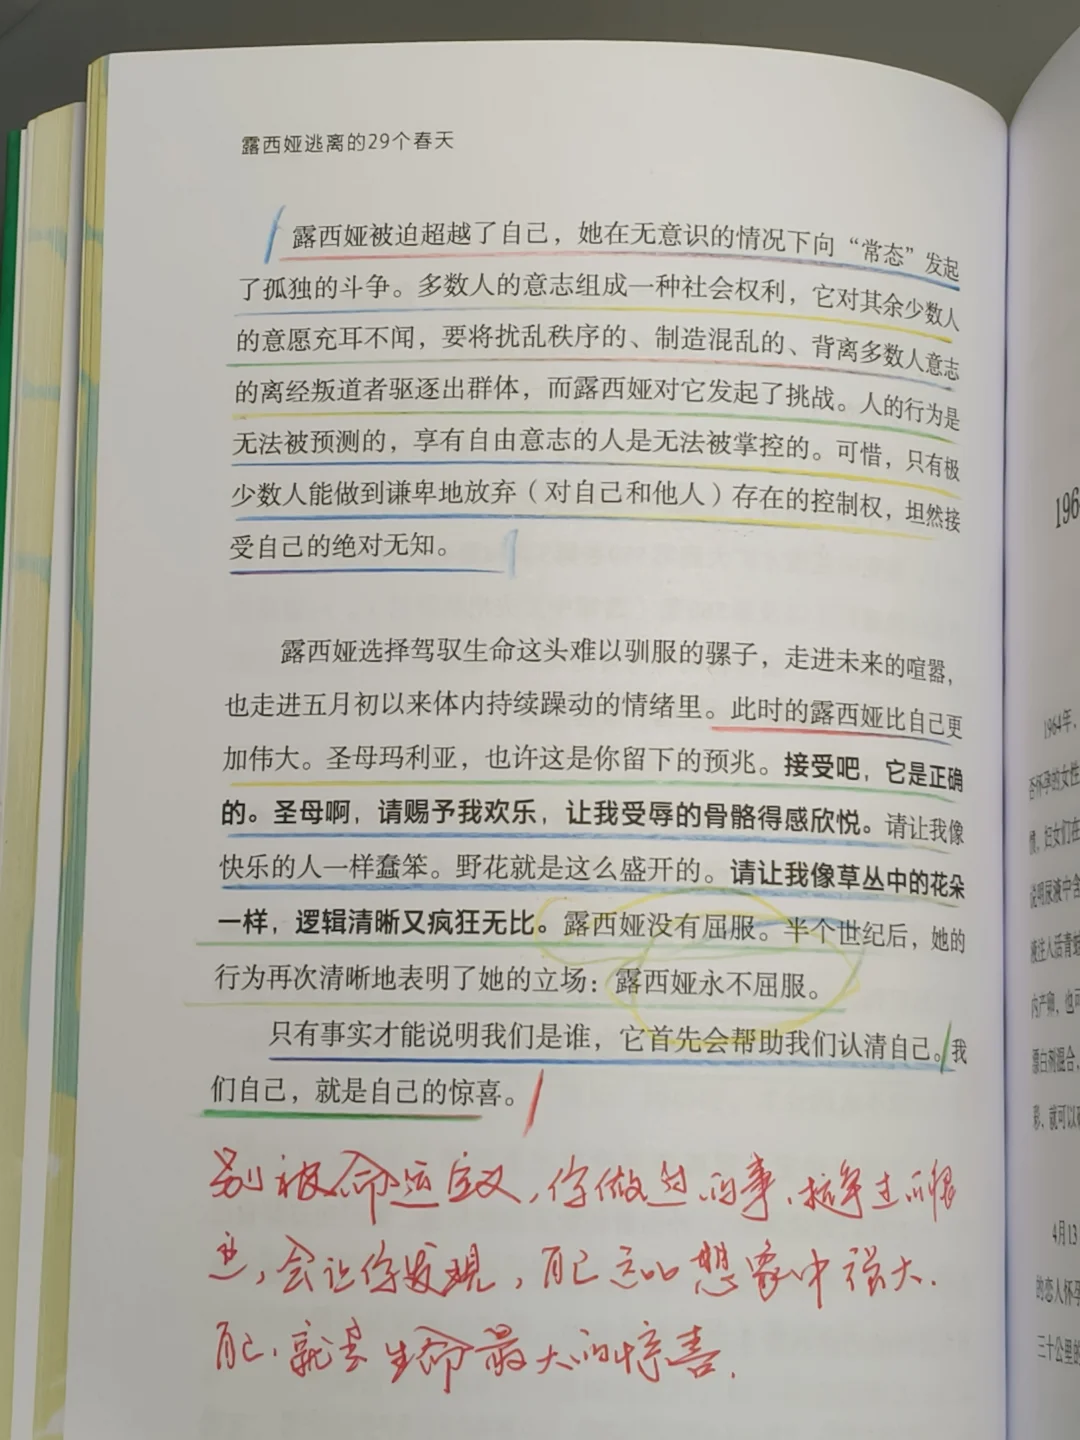 露西娅逃离的29个春天
露西娅被迫超越了自己，她在无意识的情况下向“常态”发起
了孤独的斗争。多数人的意志组成一种社会权利，它对其余少数人
的意愿充耳不闻，要将扰乱秩序的、制造混乱的、背离多数人意志
的离经叛道者驱逐出群体，而露西娅对它发起了挑战。人的行为是
无法被预测的，享有自由意志的人是无法被掌控的。可惜，只有极
少数人能做到谦卑地放弃（对自己和他人）存在的控制权，坦然接
受自己的绝对无知。
露西娅选择驾驭生命这头难以驯服的骡子，走进未来的喧嚣，
也走进五月初以来体内持续躁动的情绪里。此时的露西娅比自己更
加伟大。圣母玛利亚，也许这是你留下的预兆。接受吧，它是正确
的。圣母啊，请赐予我欢乐，让我受辱的骨骼得感欣悦。请让我像
快乐的人一样蠢笨。野花就是这么盛开的。请让我像草丛中的花朵
一样，逻辑清晰又疯狂无比。露西娅没有屈服。半个世纪后，她的
行为再次清晰地表明了她的立场：露西娅永不屈服。
只有事实才能说明我们是谁，它首先会帮助我们认清自己。我
们自己，就是自己的惊喜。
别被命运定义，你做过的事、抗争过的痕
迹，会让你发现，自己远比想象中强大.
自己，就是生命最大的惊喜.
196
1964年，
否怀孕的女性
惯，妇女们在
说明尿液中含
液注入活青蛙
内产卵，也可
漂白剂混合，
彩，就可以
4月13
的恋人怀孕
三十公里的